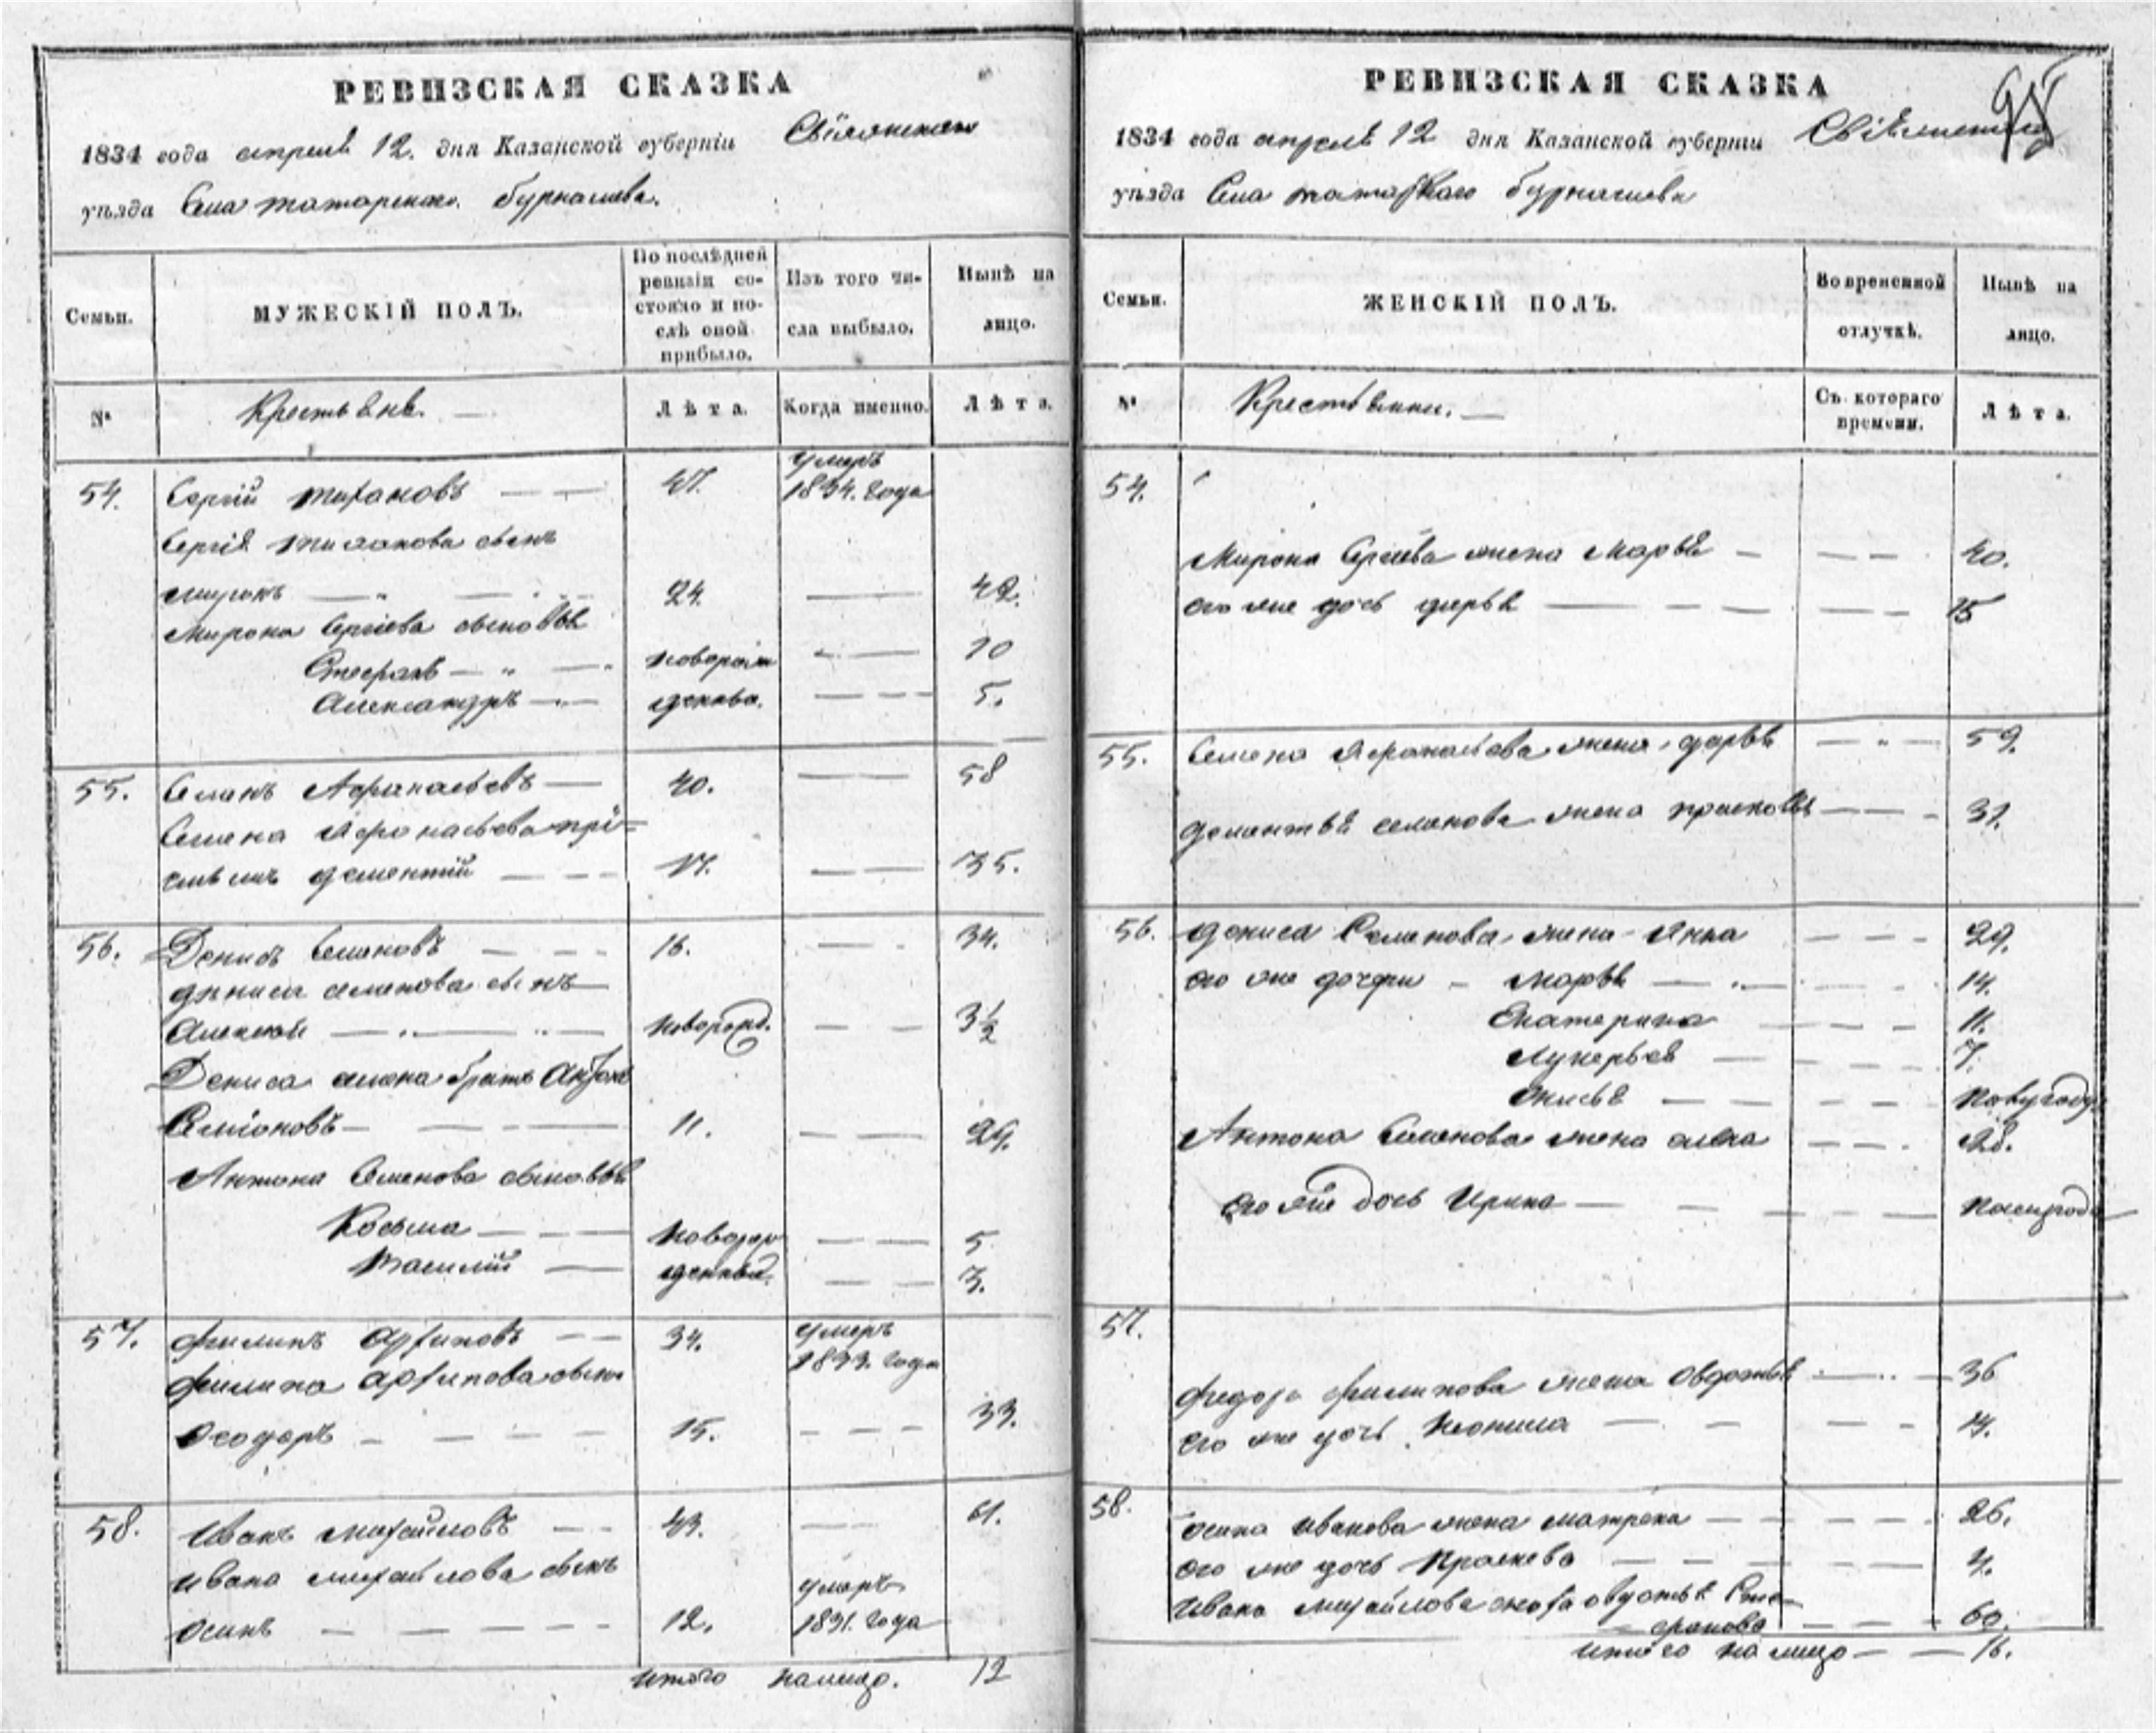 РЕВИЗСКАЯ СКАЗКА
1834 года апреля 12. дня Казанской губерніи Свіяжскаго
уѣзда Села татарскаго бурнашева.
Семьи.
МУЖЕСКІЙ ПОЛЪ.
По послѣдней
ревизіи со-
стояло и по-
слѣ оной
прибыло.
Изъ того чи-
сла выбыло.
Нынѣ на
лицо.
№
Крестьяне.
Лѣта.
Когда именно.
Лѣта.
54. Сергій 47. умеръ
1834. года
Сергія сынъ
миронъ 24. 42.
мирона Сергіева сыновья
Стефанъ новорож 10
Александръ денные. 5.
55. Семенъ Афанасьевъ 40. 58
Семена Афонасьева прі-
емышъ дементій 17. 35.
56. Денисъ Семеновъ 16. 34.
дениса семенова сынъ
Алексей новорожд. 3½
Дениса семена братъ Антонъ
Семіоновъ 11. 29.
Антона Семенова сыновья
Косьма новорож 5
Василій денные. 3.
57. филипъ Архиповъ 34. умеръ
1833. года
филипа архипова сынъ
Феодоръ 15. 33.
58. Иванъ михайловъ 43. 61.
Ивана михайлова сынъ
осипъ 12. умеръ
1831. года
итого налицо. 12
РЕВИЗСКАЯ СКАЗКА
95
1834 года апреля 12 дня Казанской губерніи Свіяжскаго
уѣзда Села татарскаго бурнашева
Семьи.
ЖЕНСКІЙ ПОЛЪ.
Во временной
отлучкѣ.
Нынѣ на
лицо.
№
Крестьянки.
Съ котораго
времени.
Лѣта.
54.
Мирона Сергіева жена Марья 40.
его же дочь дарья 15
55. Семена Афонасьева жена дарья 59.
дементья семенова жена прасковья 31.
56. дениса Семенова жена Анна 29.
его же дочери марья 14.
Екатерина 11.
Лукерья 7.
Антона Семенова жена 28.
его же дочь Ирина
57.
федора филипова жена Овдотья 36
его же дочь 14.
58. осипа иванова жена матрена 26.
его же дочь Прасковья 4.
Ивана михайлова жена овдотья Сте-
фанова 60.
итого налицо 16.